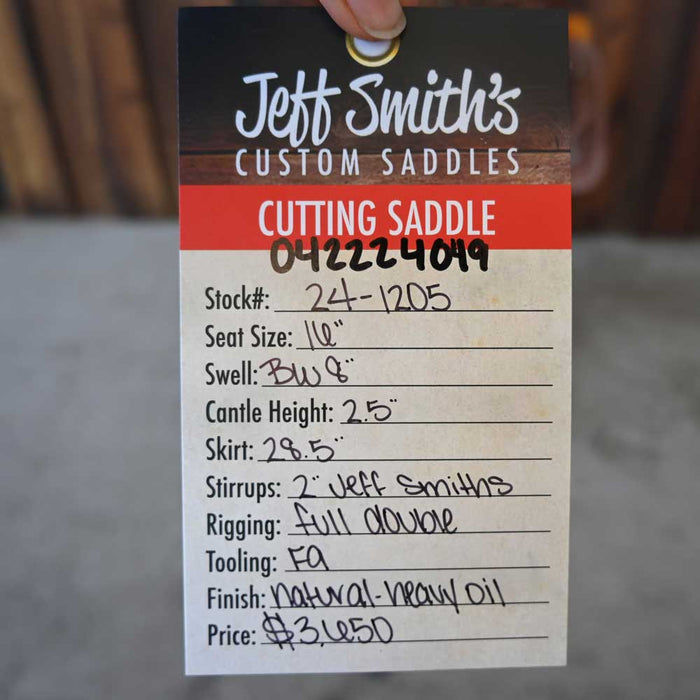 Jeff Smith's
CUSTOM SADDLES
CUTTING SADDLE
042224049
Stock#: 24-1205
Seat Size: 16"
Swell: BW 8"
Cantle Height: 2.5"
Skirt: 28.5"
Stirrups: 2" Jeff Smiths
Rigging: full double
Tooling: FA
Finish: natural-heavy oil
Price: $3,650